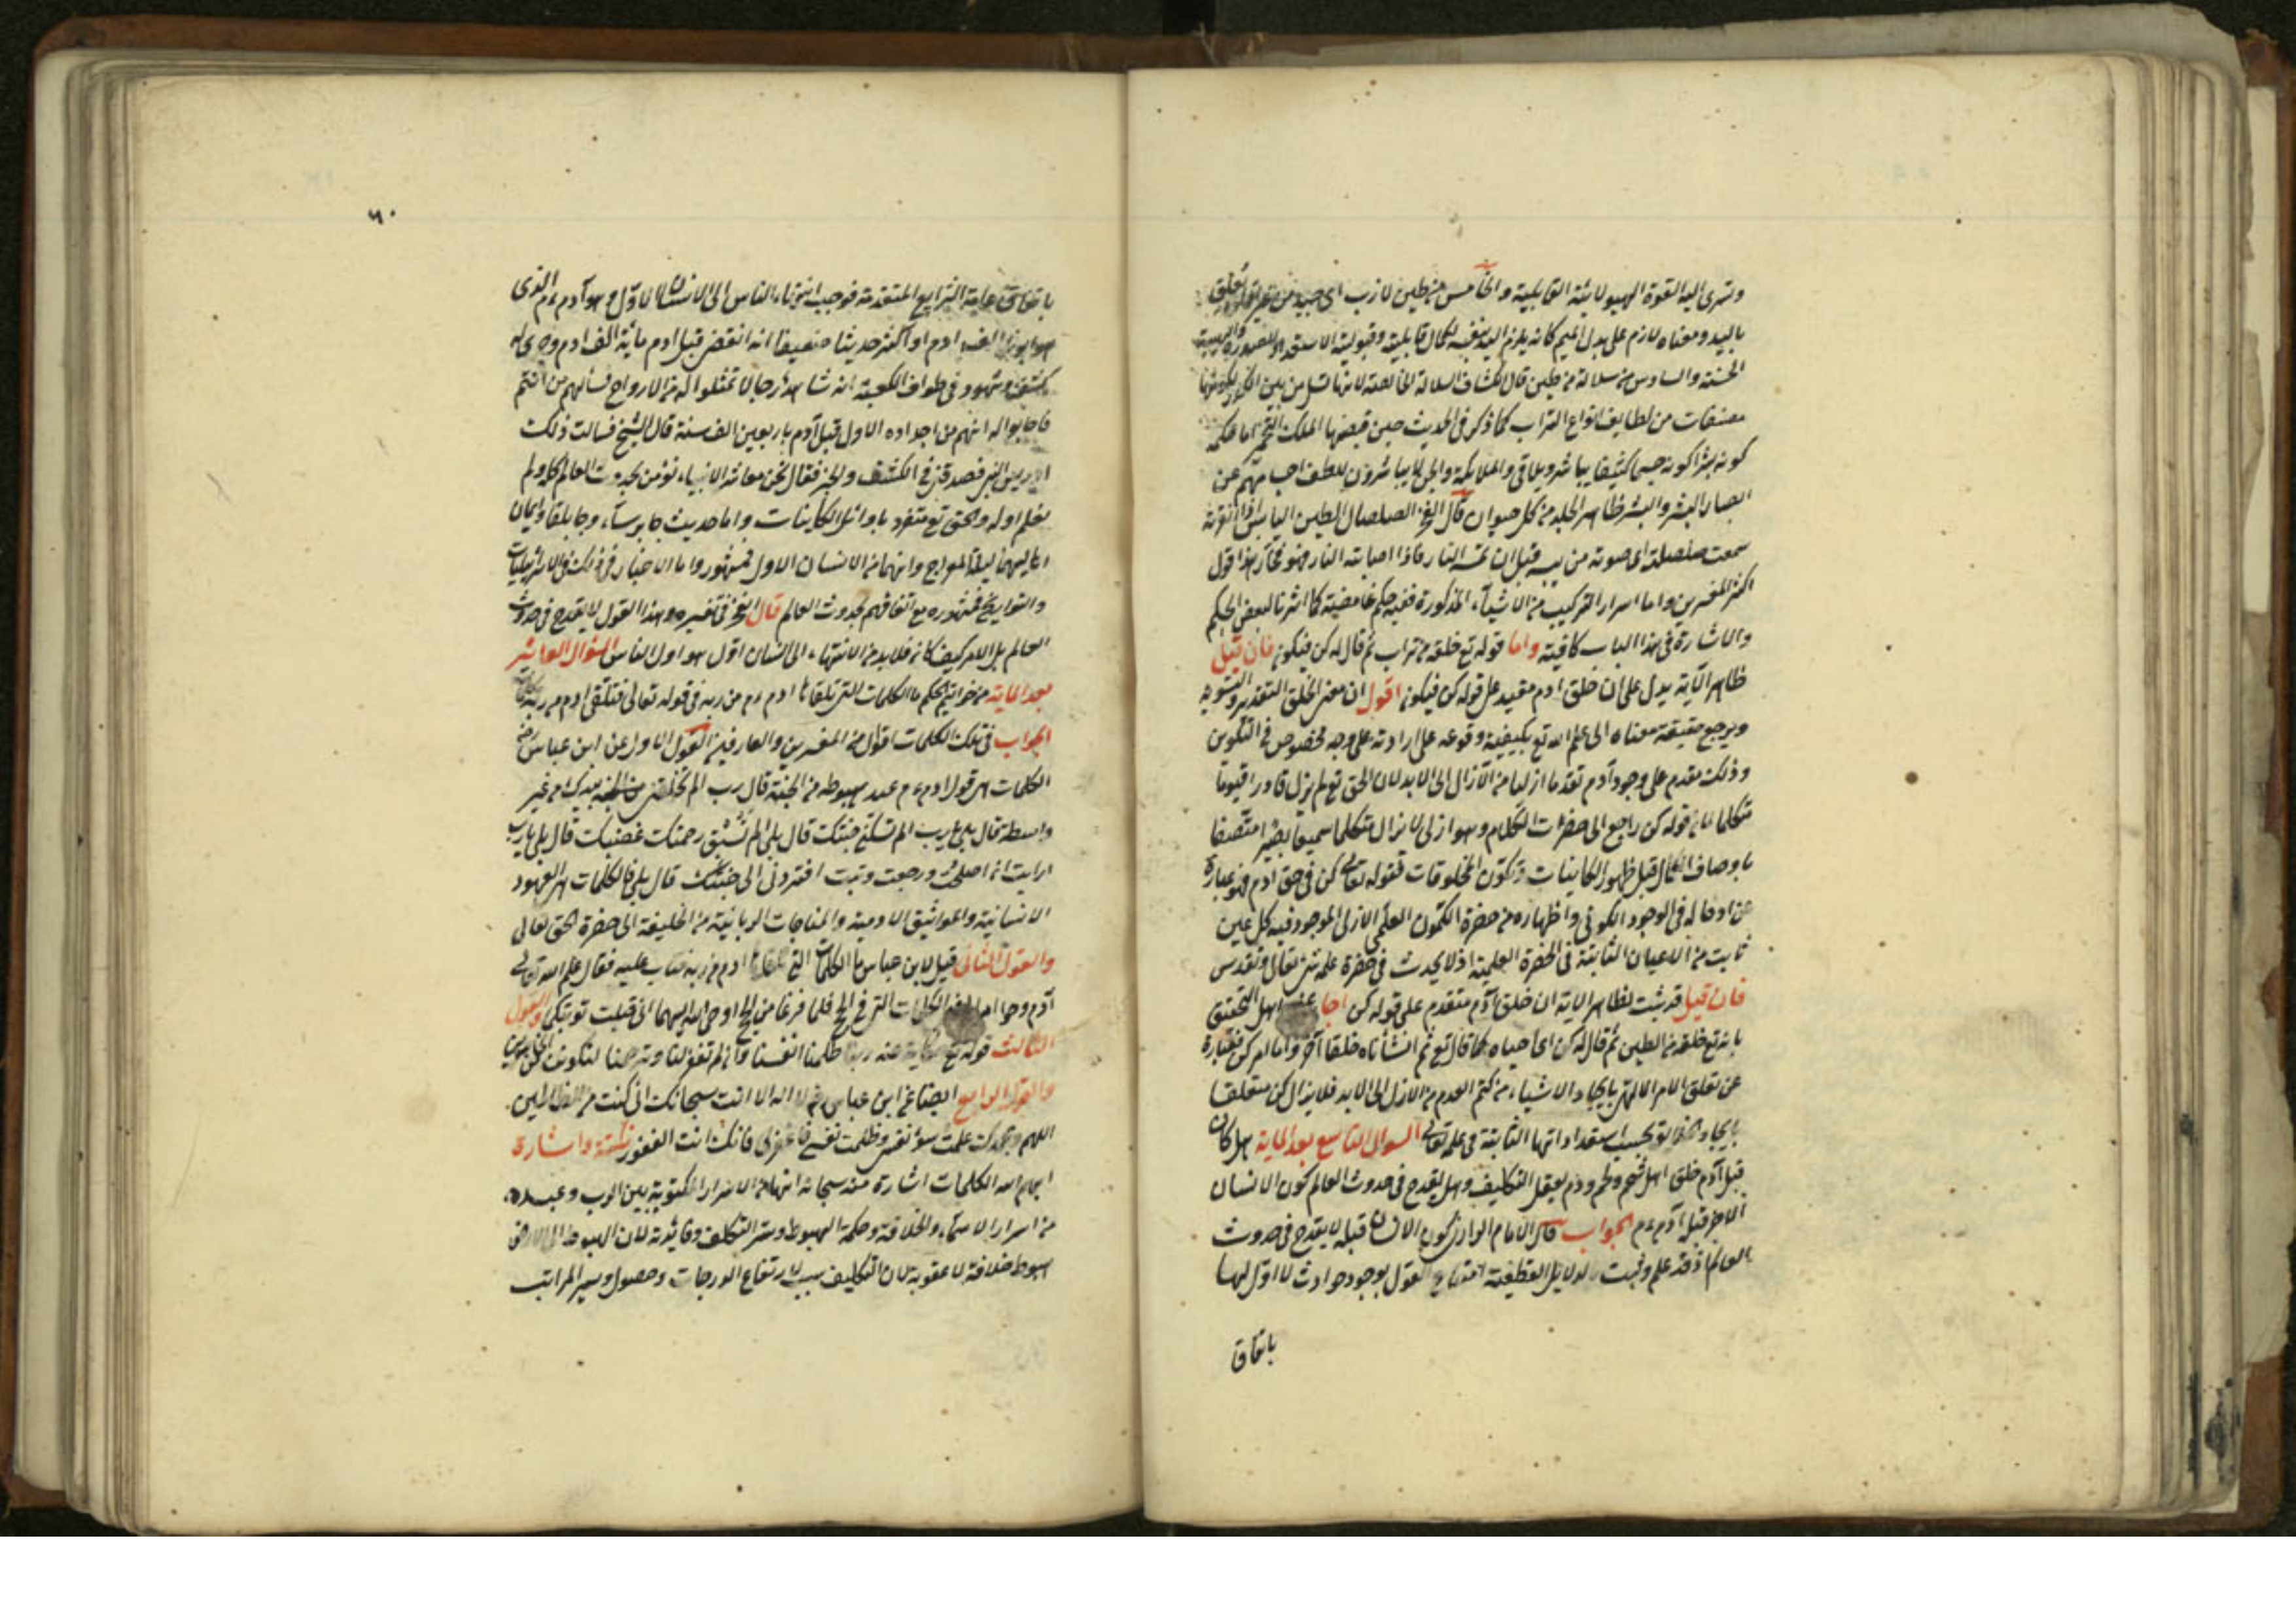 وتهرى اليه القوة الهيولانية القابلية والخامس من طين لازب اى جيد
باليد ومعناه لازم على بدل الميم كانه يلزم اليد نفسه لكمال قابليته وقبوليته الاستعداد للصورة
الحسنة والسادس من سلالة من طين قال الكشاف السلالة الخالصة لانها تسل من بين الكدر
مصنفات من لطايف انواع التراب كما ذكر فى الحديث حين قبضها الملك اما حكمة
كونه بشرا كونه جسما كثيفا يباشر ويلاقى والملائكة والجن لا يباشرون للطف اجسامهم عن
ابصار البشر والبشر ظاهر الجلد من كل حيوان قال الصلصال الطين اليابس اذا نقرته
سمعت صلصلة اى صوته من يبسه قبل ان تمسه النار فاذا اصابته النار فهو فخار هذا قول
اكثر المفسرين واما اسرار التركيب من الاشياء المذكورة ففيه حكم غامضية كما اشرنا لبعض الحكم
والاشارة فى هذا الباب كافية واما قوله تع خلقه من تراب ثم قال له كن فيكون فان قيل
ظاهر الآية يدل على ان خلق ادم مقيد على قوله كن فيكون اقول ان معنى الخلق التقدير والتسوية
ويرجع حقيقة معناه الى علم الله تع بكيفية وقوعه على ارادته على وجه مخصوص فى التكوين
وذلك مقدم على وجود آدم تقدما ازليا من الآزال الى الابد لان الحق تع لم يزل قادرا قيوما
متكلما لان قوله كن راجع الى حضرت الكلام وهو ازلى لا يزال متكلما سميعا بصيرا متصفا
باوصاف الكمال قبل ظهور الكاينات وتكون المخلوقات فقوله تعالى كن فى حق ادم فهو عبارة
عن ادخاله فى الوجود الكونى واظهاره من حضرة الكمون العلمى الازلى الموجود فيه كل عين
ثابت من الاعيان الثابتة فى الحضرة العلمية اذ لا يحدث فى حضرة علمه شئ تعالى وتقدس
فان قيل قد يثبت لظاهر الاية ان خلق آدم متقدم على قوله كن اجاب عنه اهل التحقيق
بانه تع خلقه من الطين ثم قال له كن اى احياه كما قال تع ثم انشأناه خلقا آخر واما امر كن فعبارة
عن تعلق الامر الالهى بايجاد الاشياء من كتم العدم من الازل الى الابد فلا يزال كن متعلقا
بايجاد بحسب استعداداتها الثابتة فى علمه تعالى السوال التاسع بعد المایة هل كان
قبل آدم خلق اهل شحم ولحم ودم يعقل التكليف وهل يقدح فى حدوث العالم كون الانسان
الاخر قبل آدم عم الجواب قال الامام الرازى كون الانسان قبله لا يقدح فى حدوث
العالم اذ قد علم وثبت الدلايل القطعية امتناع القول بوجود حوادث لا اول لها
باتفاق
٦٠
باتفاق عامة الشرايع المتقدمة فوجب انتهاء الناس الى الانسان الاول هو آدم عم الذى
هو ابونا الف ادم او اكثر حديثا ضعيفا انه انقضى قبل ادم مائة الف ادم وجرى له
كشف وشهود فى طواف الكعبة انه شاهد رجالا تمثلوا له من الارواح فسالهم من انتم
فاجابوا له انهم من اجداده الاول قبل آدم باربعين الف سنة قال الشيخ فسالت ذلك
ادريس النبى فصدقنى فى الكشف والخبر فقال نحن معاشر الانبياء نؤمن بحدوث العالم كله ولم
نعلم اوله والحق تع متفرد باوائل الكاينات واما حديث جابرسا وجابلقا وايمان
اهاليهما ليلة المعراج وانهما من الانسان الاول فمشهور واما الاخبار فى ذلك
والتواريخ فمشهوره مع اتفاقهم بحدوث العالم قال الفخر فى تفسيره وهذا القول لا يقدح فى حدوث
العالم بل الامر كيف كان فلا بد من الانتهاء الى انسان اول هو اول الناس السؤال العاشر
بعد المایة من خواتيم الحكم ما الكلمات التى تلقاها ادم عم من ربه فى قوله تعالى فتلقى ادم من ربه كلمات
الجواب فى تلك الكلمات اقوال من المفسرين والعارفين القول الاول عن ابن عباس
الكلمات هى قول ادم عم عند هبوطه من الجنة قال رب الم تخلقنى بيدك من غير
واسطة قال بلى يارب الم تسكنى جنتك قال بلى الم تسبق رحمتك غضبك قال بلى يارب
ارايت ان اصلحت ورجعت وتبت افتردنى الى جنتك قال بلى فالكلمات هى العهود
الانسانية والمواثيق الادمية والمناجات الربانية من الخليفة الى حضرة الحق تعالى
والقول الثانى قيل لابن عباس ما الكلمات التى ادم من ربه فتاب عليه فقال علم الله تعالى
آدم وحوا الكلمات التى فى الحج فلما فرغا من الحج اوحى الله اليهما انى قبلت توبتكما والقول
الثالث قوله تع حكاية عنه ربنا ظلمنا انفسنا وان لم تغفر لنا وترحمنا لنكونن من الخاسرين
والقول الرابع ايضا عن ابن عباس لا اله الا انت سبحانك انى كنت من الظالمين
اللهم وبحمدك عملت سوء نفسى وظلمت نفسى فاغفرلى فانك انت الغفور نكتة واشارة
ابهام الله الكلمات اشارة منه سبحانه انها من الاسرار المكتوبة بين الرب وعبده
من اسرار الاسماء والخلافة وحكمة الهبوط وستر التكلف وفايدته لان الهبوط الى الارض
هبوط خلافة لا عقوبة لان التكليف سبب لارتفاع الدرجات وحصول وسير المراتب